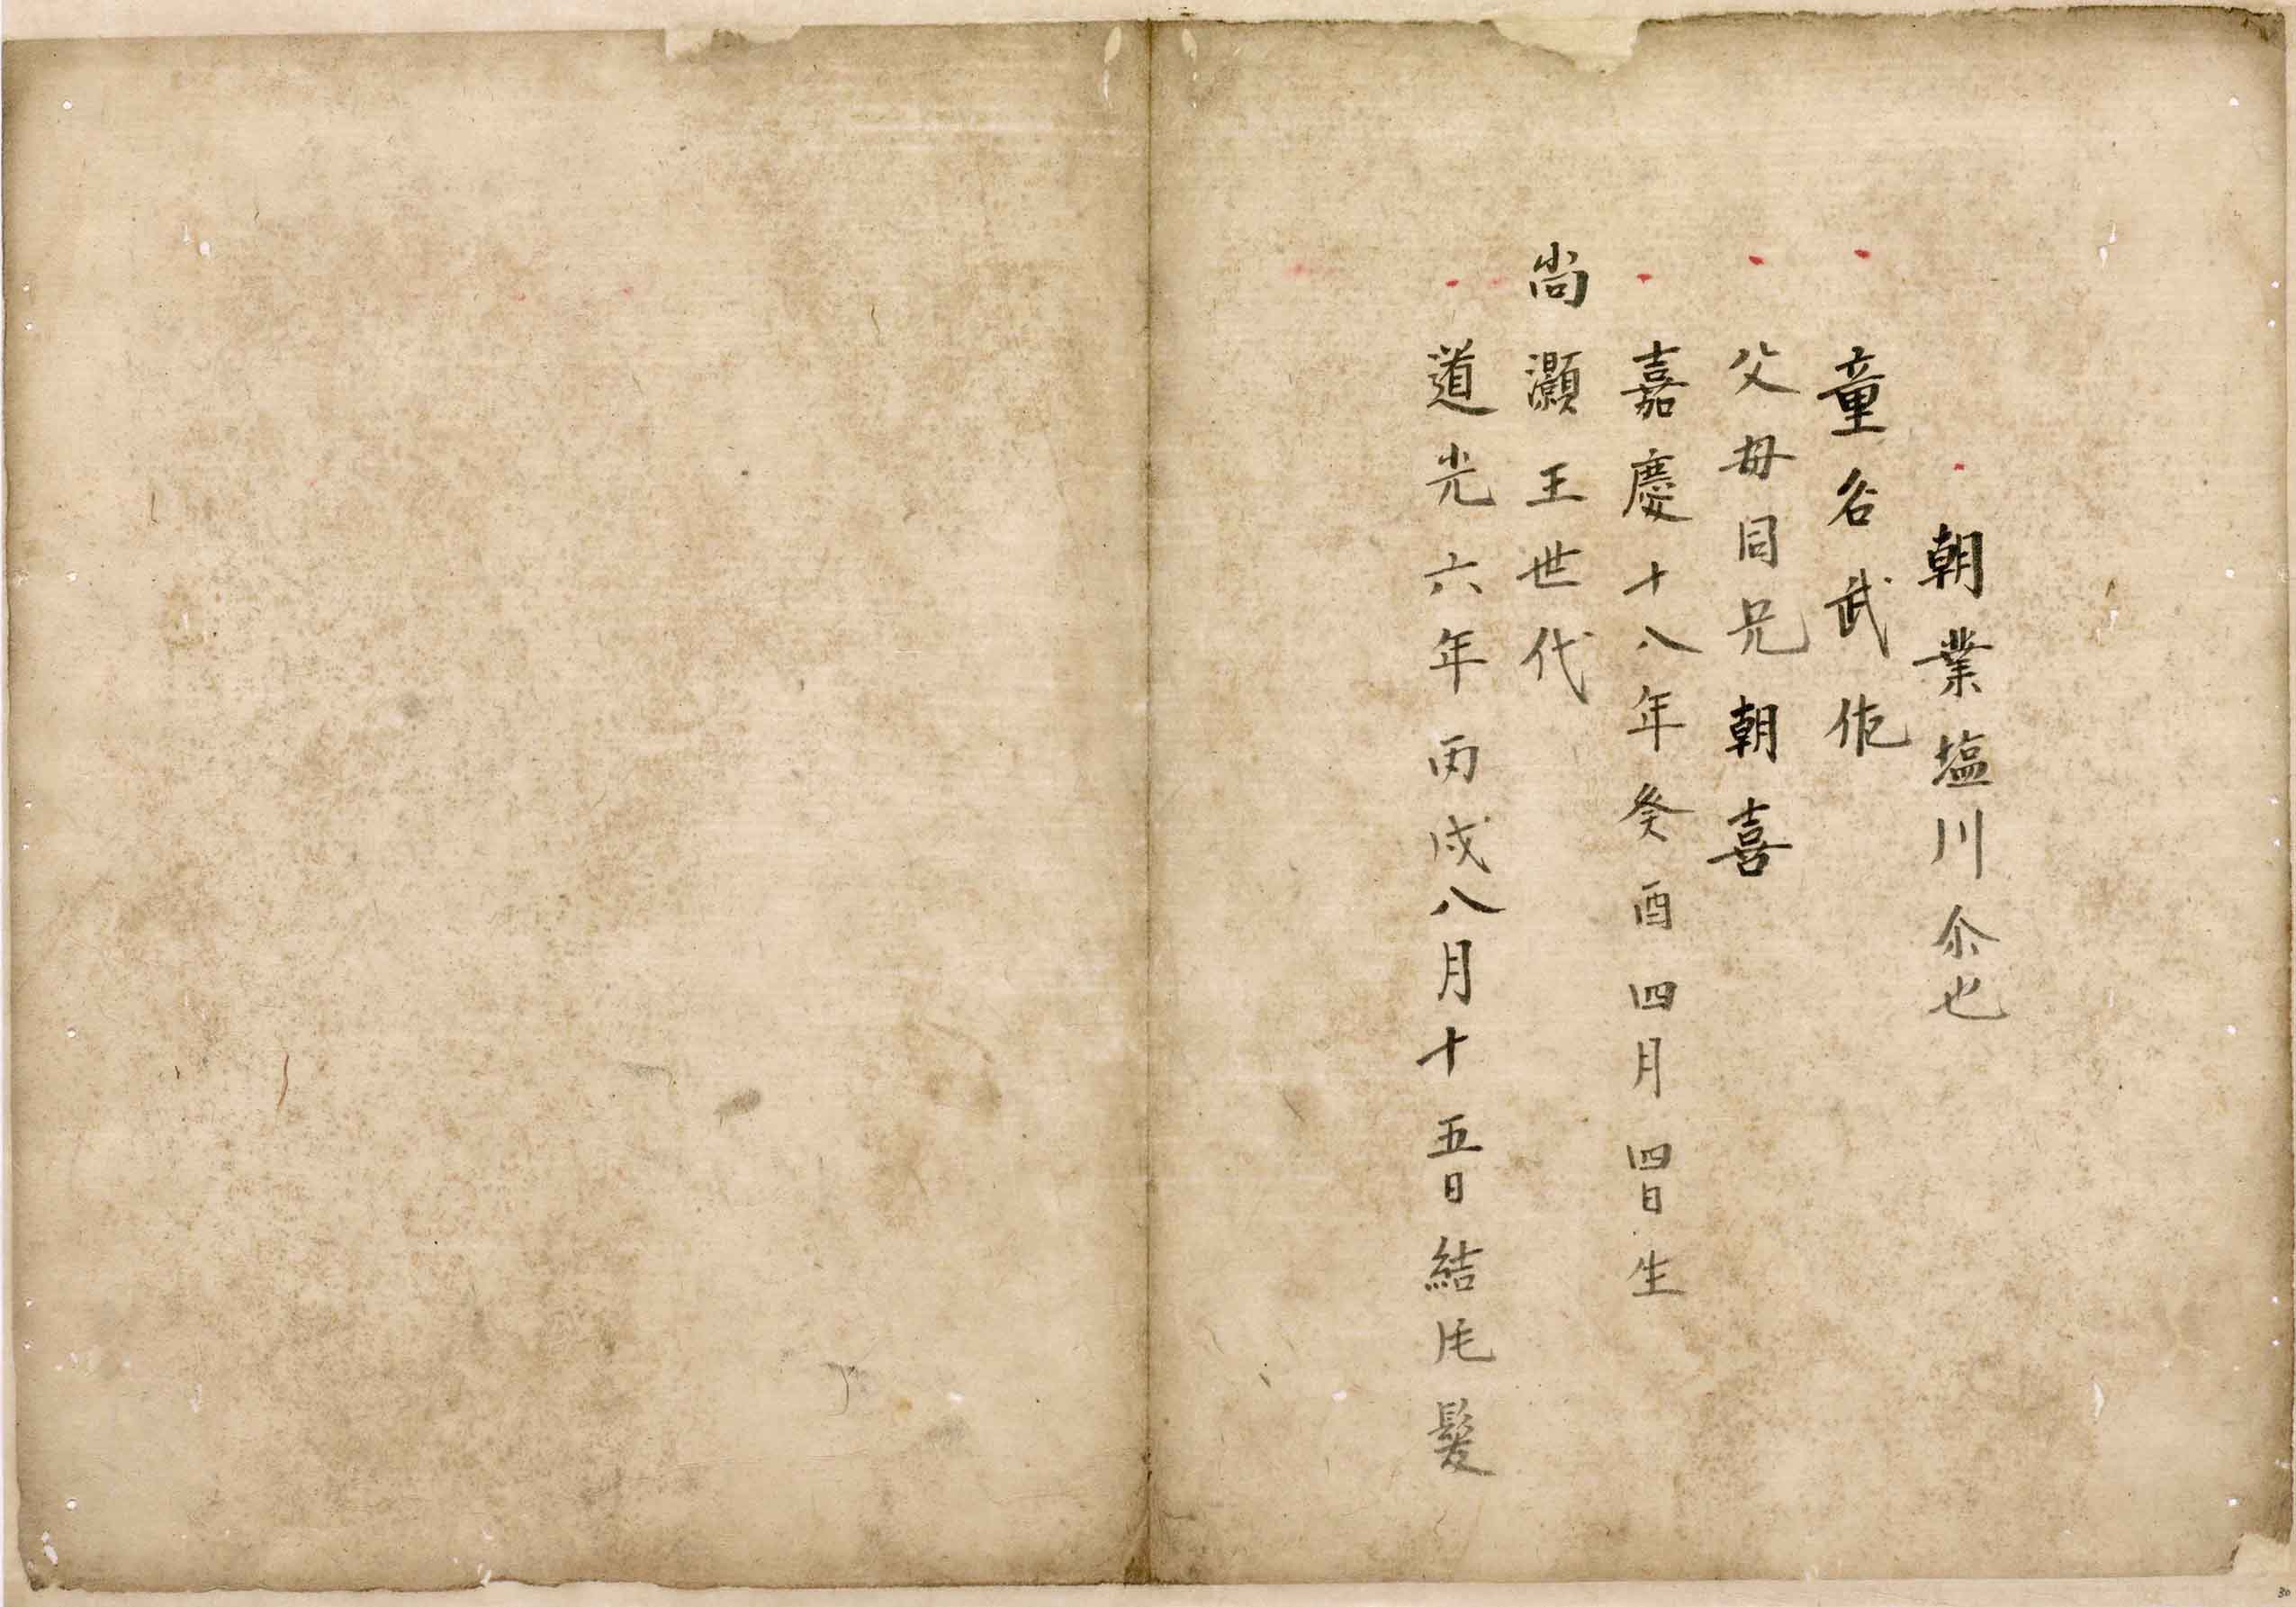 朝業塩川尒也
童名武
父母同兄朝喜
嘉慶十八年癸酉四月四日生
尚灝王世代
道光六年丙戌八月十五日結髮
30